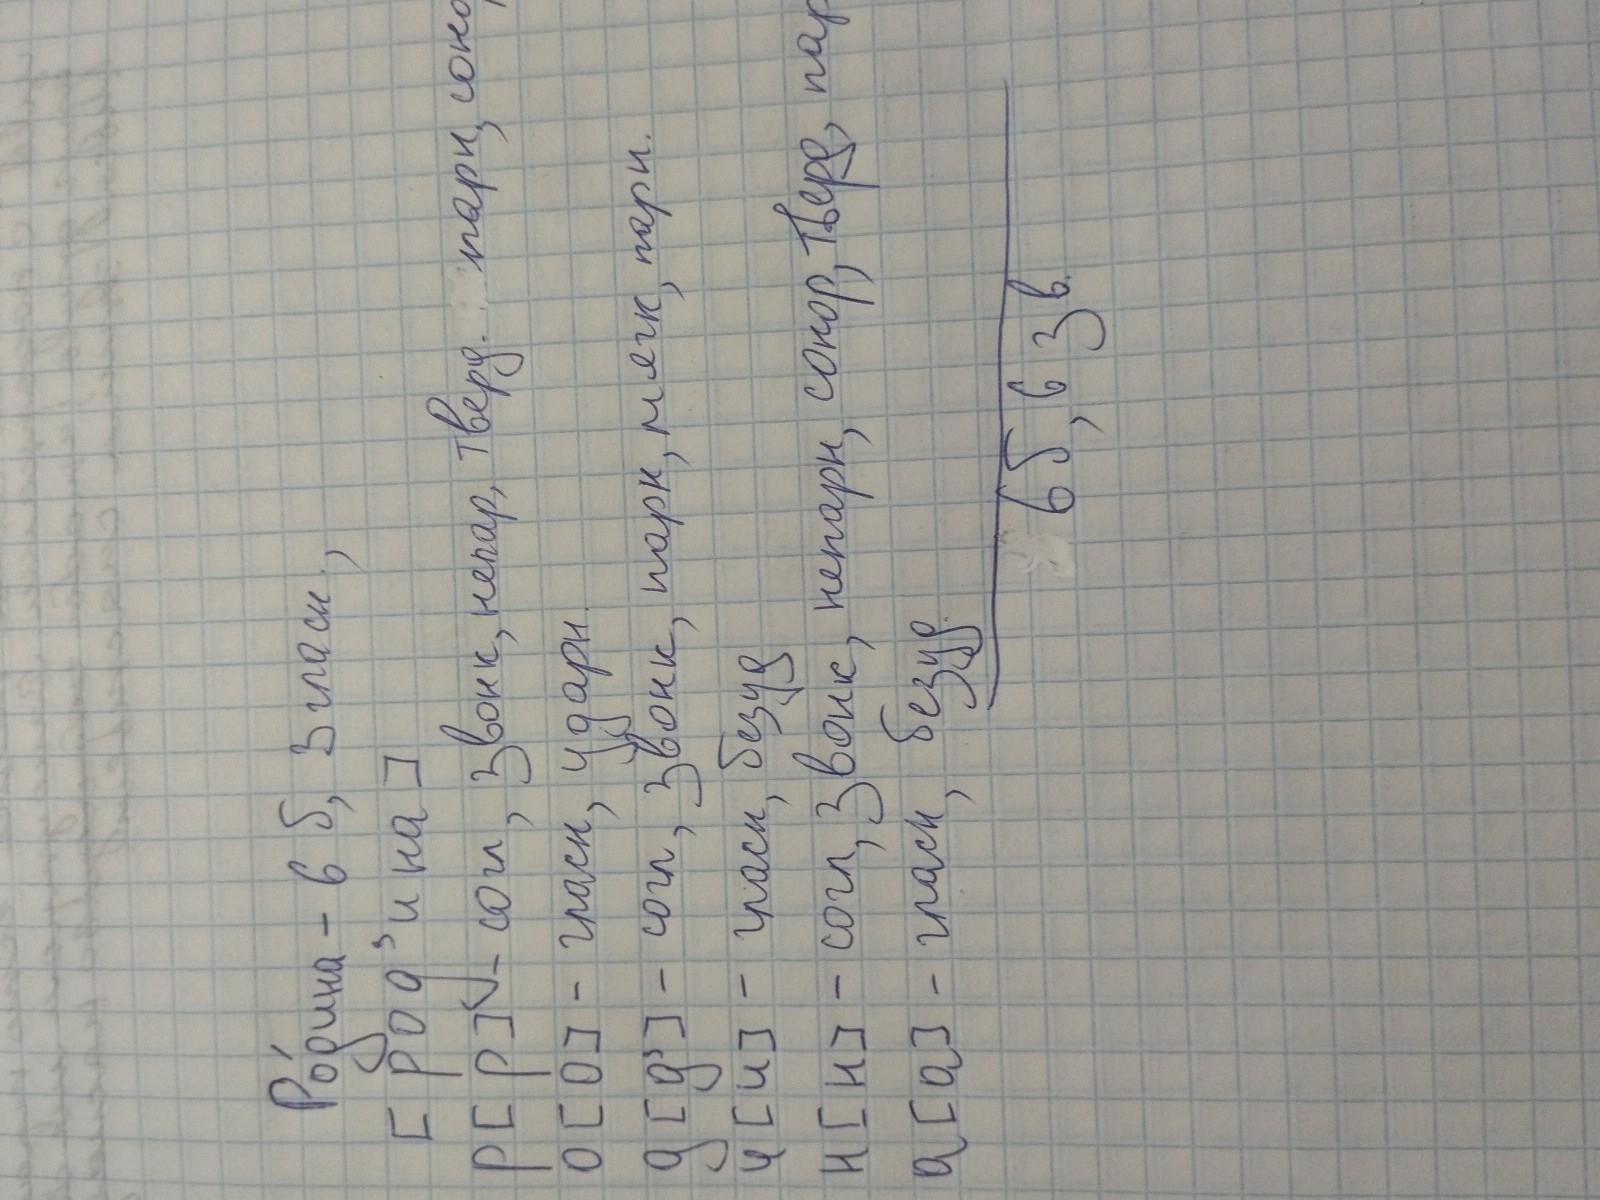 Ро́дина - 6 б, 3 гласн.,
[род'ина]
р[р] - согл, звонк, непар, тверд. парн, сонор
о[о] - гласн, ударн.
д[д'] - согл, звонк, парн, мягк, парн.
и[и] - гласн, безуд
н[н] - согл, звонк, непарн, сонор, тверд, пар
а[а] - гласн, безуд.
6б, 6 зв.